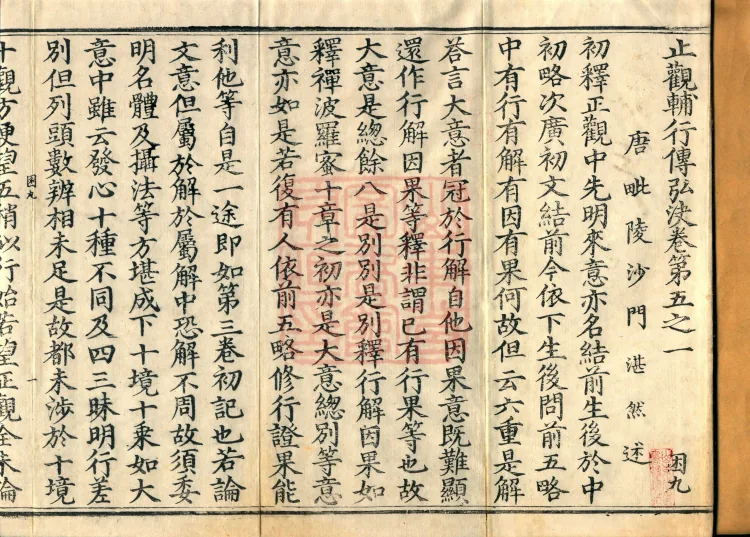 止觀輔行傳弘決卷第五之一
唐毗陵沙門湛然述
困九
初釋正觀中先明來意亦名結前生後於中
初略次廣初文結前今依下生後問前五略
中有行有解有因有果何故但云六重是解
荅言大意者冠於行解自他因果意既難顯
還作行解因果等釋非謂已有行果等也故
大意是總餘八是別別是別釋行解因果如
釋禪波羅蜜十章之初亦是大意總別等意
意亦如是若復有人依前五略修行證果能
利他等自是一途即如第三卷初記也若論
文意但屬於解於屬解中恐解不周故須委
明名體及攝法等方堪成下十境十乘如大
意中雖云發心十種不同及四三昧明行差
別但列頭數辨相未足是故都未涉於十境
困九
一
十觀方便望五稍似行始若望正觀全未論